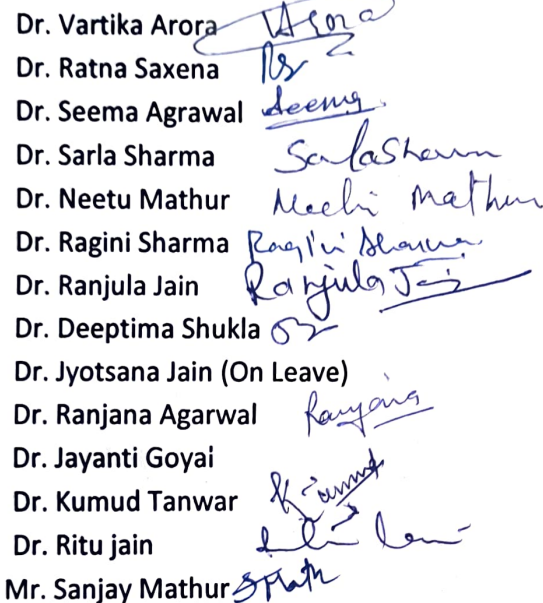 Dr. Vartika Arora Arora
Dr. Ratna Saxena
Dr. Seema Agrawal Seema
Dr. Sarla Sharma SarlaSharma
Dr. Neetu Mathur Neetu Mathur
Dr. Ragini Sharma Ragini Sharma
Dr. Ranjula Jain Ranjula Jain
Dr. Deeptima Shukla
Dr. Jyotsana Jain (On Leave)
Dr. Ranjana Agarwal Ranjana
Dr. Jayanti Goyal
Dr. Kumud Tanwar
Dr. Ritu jain
Mr. Sanjay Mathur SMath